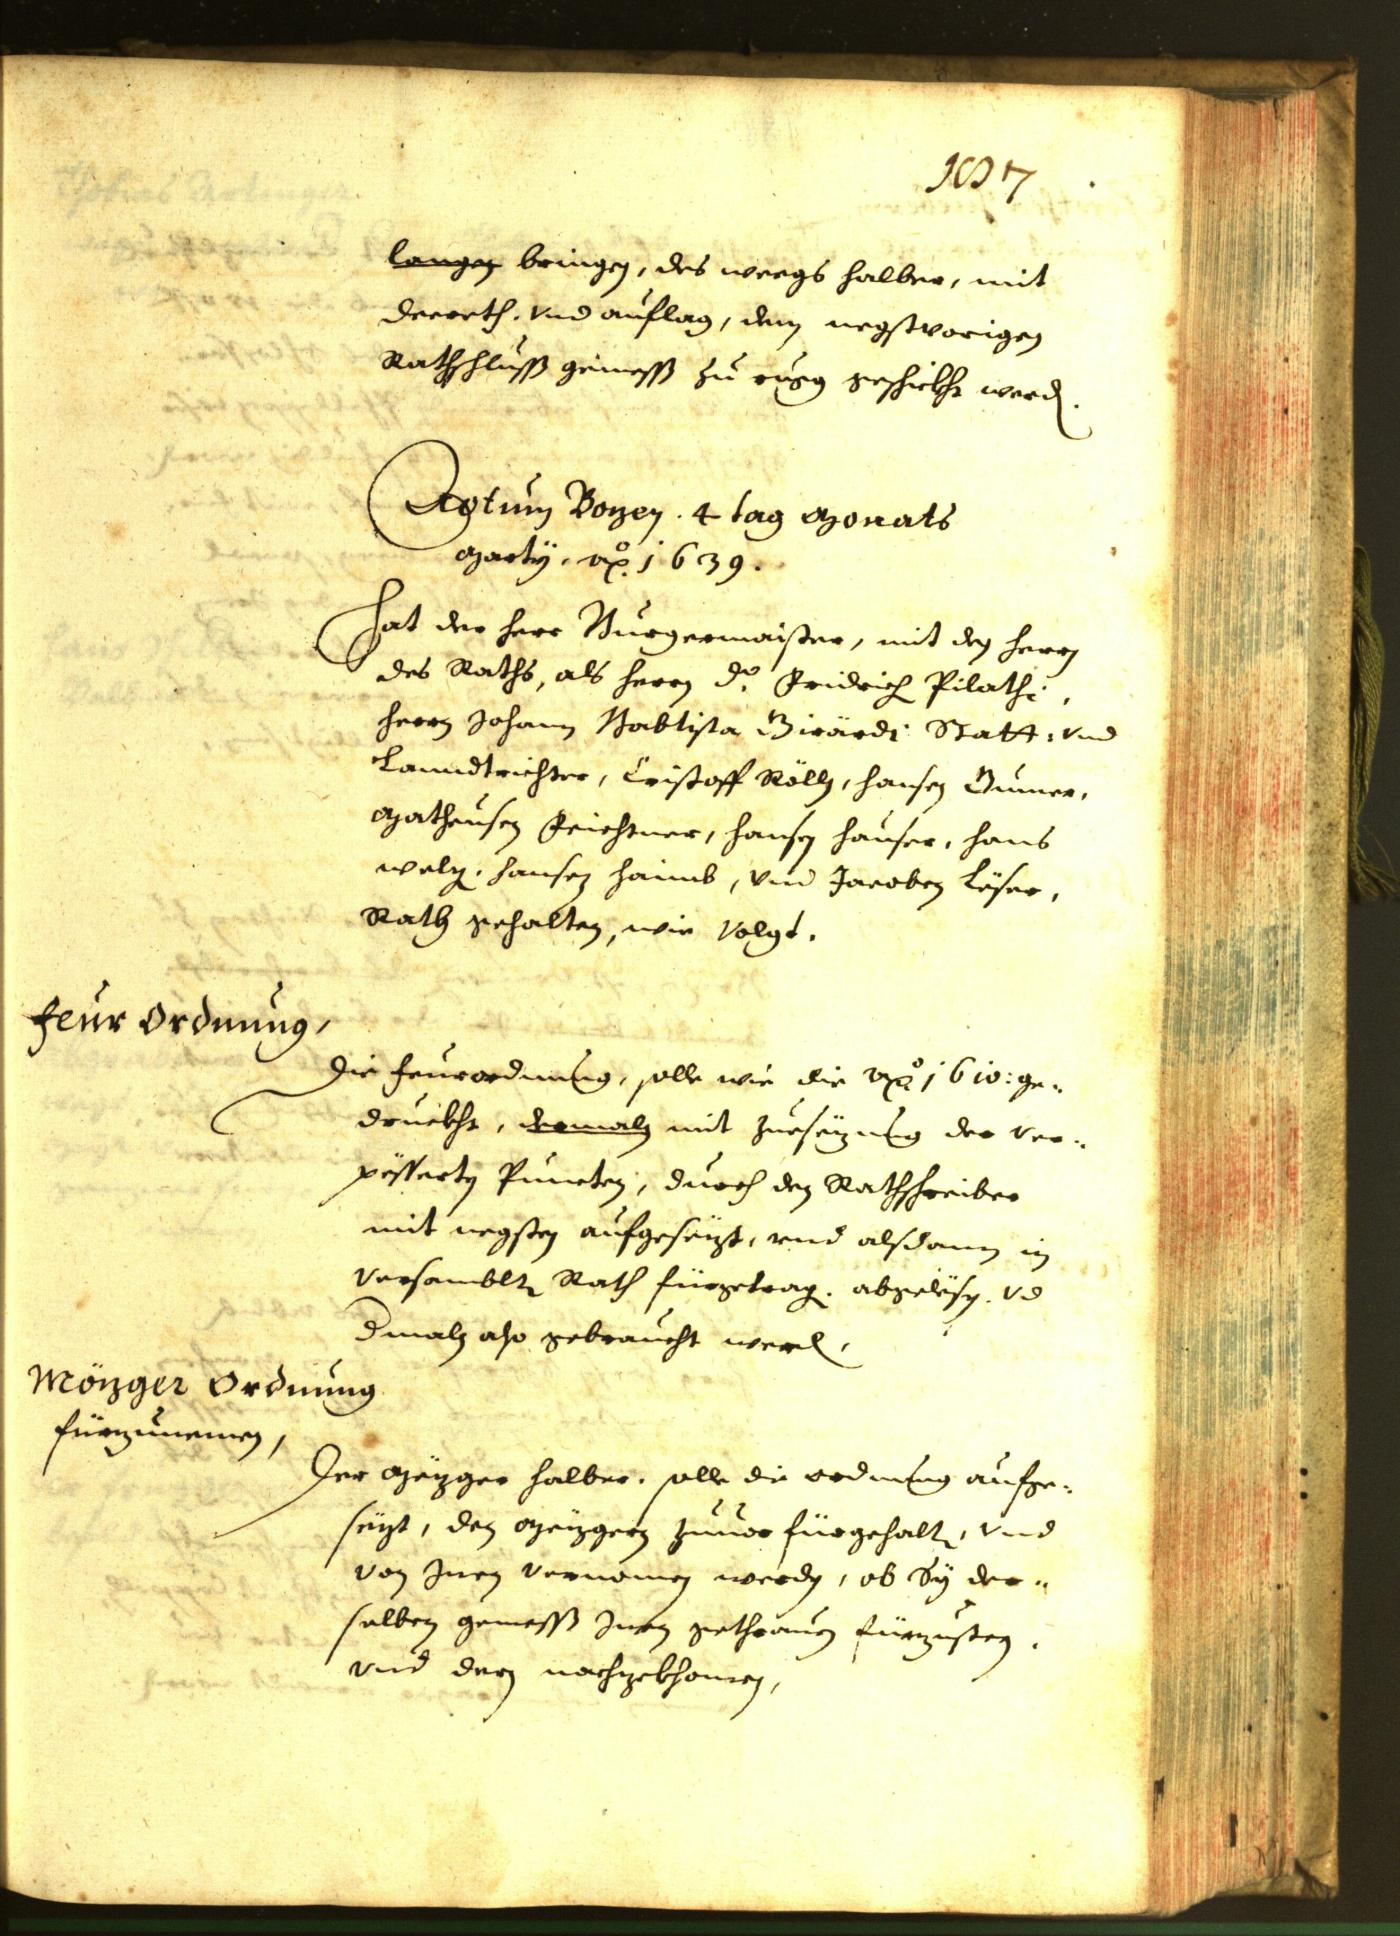 187
langen bringen, des weegs halber, mit
decreth. vnd auflag, dem negstvorigen
Rathschluss gemess zu rugg geschickht werd.
Actum Bozen. 4 tag Monats
Marty. Ao. 1639.
Hat der herr Burgermaister, mit den herrn
des Raths, als herrn D. Fridrich Pilathi,
herrn Johann Babtista Girärdi Statt: vnd
Lanndtrichter, Cristoff Röll, hansen Gumer,
Matheusen Feichtner, hansen hauser, hans
welz. hansen haimb, vnd Jacoben Leser,
Rath gehalten, wie volgt.
Feur Ordnung,
Die feurordnung, solle wie die Ao 1610: ge-
druckht, dermaln mit zuesezung der ver-
pesserten Puncten, durch den Rathschreiber
mit negsten aufgesezt, vnd alsdann in
versamblten Rath fürgetragen. abgelesen. vnd
dmaln also gebraucht werden,
Mözger Ordnung
fürzunemen,
Der Mezger halber. solle die ordnung aufge-
sezt, den Mezgern zuuor fürgehalten, vnd
von Inen vernomen werden, ob Sy der-
selben gemess Inen gethrauen fürzusten.
vnd deren nachzekhomen,